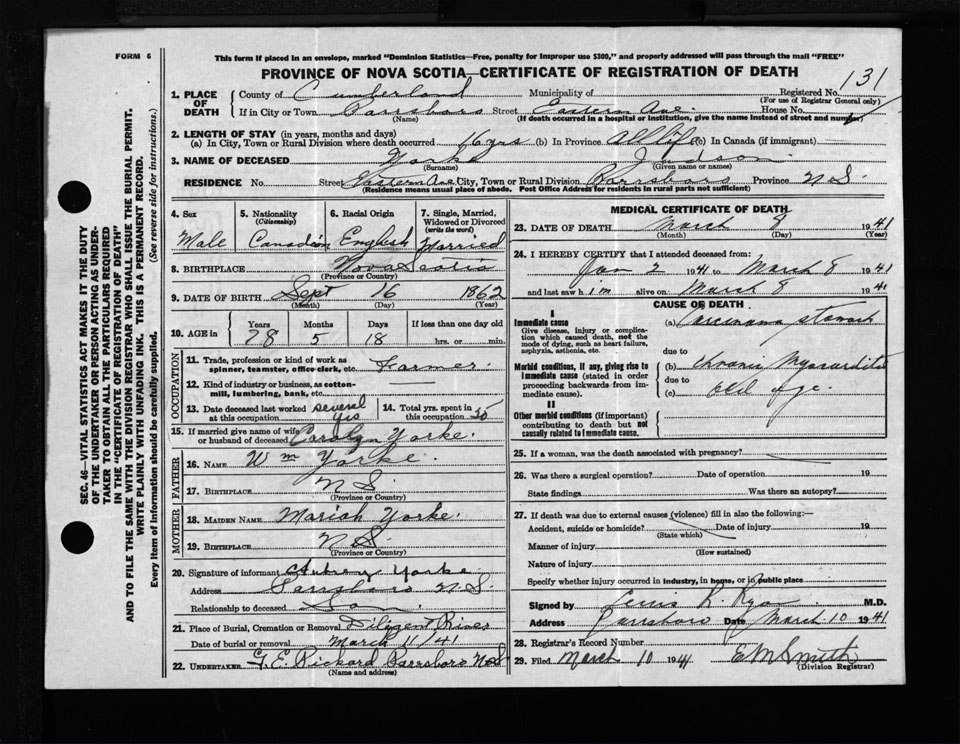 FORM 6
This form if placed in an envelope, marked "Dominion Statistics—Free, penalty for improper use $300," and properly addressed will pass through the mail "FREE"
PROVINCE OF NOVA SCOTIA—CERTIFICATE OF REGISTRATION OF DEATH
131
1. PLACE OF DEATH
County of Cumberland Municipality of Registered No.
(For use of Registrar General only)
If in City or Town Parrsboro Street Eastern Ave. House No.
(Name) (If death occurred in a hospital or institution, give the name instead of street and number)
2. LENGTH OF STAY (in years, months and days)
(a) In City, Town or Rural Division where death occurred 16 yrs (b) In Province All life (c) In Canada (if immigrant)
3. NAME OF DECEASED Yorke Judson
(Surname) (Given name or names)
RESIDENCE No. Street Eastern Ave. City, Town or Rural Division Parrsboro Province N.S.
(Residence means usual place of abode. Post Office Address for residents in rural parts not sufficient)
4. Sex
Male
5. Nationality
(Citizenship)
Canadian
6. Racial Origin
English
7. Single, Married, Widowed or Divorced
(write the word)
Married
8. BIRTHPLACE Nova Scotia
(Province or Country)
9. DATE OF BIRTH Sept 16 1862
(Month) (Day) (Year)
10. AGE in Years Months Days If less than one day old
78 5 18 hrs. or min.
OCCUPATION
11. Trade, profession or kind of work as spinner, teamster, office clerk, etc. Farmer
12. Kind of industry or business, as cotton-mill, lumbering, bank, etc.
13. Date deceased last worked at this occupation several yrs
14. Total yrs. spent in this occupation 50
15. If married give name of wife or husband of deceased Carolyn Yorke.
FATHER
16. NAME Wm Yorke.
17. BIRTHPLACE N S.
(Province or Country)
MOTHER
18. MAIDEN NAME Mariah Yorke.
19. BIRTHPLACE N S.
(Province or Country)
20. Signature of informant Aubrey Yorke
Address Parrsboro N.S.
Relationship to deceased Son.
21. Place of Burial, Cremation or Removal Diligent River
Date of burial or removal March 11/41
22. UNDERTAKER G. E. Rickard Parrsboro N.S
(Name and address)
MEDICAL CERTIFICATE OF DEATH
23. DATE OF DEATH March 8 1941
(Month) (Day) (Year)
24. I HEREBY CERTIFY that I attended deceased from:
Jan 2 1941 to March 8 1941
and last saw him alive on March 8 1941
CAUSE OF DEATH
I
Immediate cause
Give disease, injury or complication which caused death, not the mode of dying, such as heart failure, asphyxia, asthenia, etc.
(a) Carcinoma stomach
due to
Morbid conditions, if any, giving rise to immediate cause (stated in order proceeding backwards from immediate cause).
(b) chronic Myocarditis
due to
(c) Old age
II
Other morbid conditions (if important) contributing to death but not causally related to immediate cause.
25. If a woman, was the death associated with pregnancy?
26. Was there a surgical operation? Date of operation 19
State findings Was there an autopsy?
27. If death was due to external causes (violence) fill in also the following:—
Accident, suicide or homicide? Date of injury 19
(State which)
Manner of injury
(How sustained)
Nature of injury
Specify whether injury occurred in industry, in home, or in public place
Signed by R. Ryan M.D.
Address Parrsboro Date March 10 1941
28. Registrar's Record Number
29. Filed March 10 1941 E M Smith
(Division Registrar)
SEC. 46—VITAL STATISTICS ACT MAKES IT THE DUTY
OF THE UNDERTAKER OR PERSON ACTING AS UNDER-
TAKER TO OBTAIN ALL THE PARTICULARS REQUIRED
IN THE "CERTIFICATE OF REGISTRATION OF DEATH"
AND TO FILE THE SAME WITH THE DIVISION REGISTRAR WHO SHALL ISSUE THE BURIAL PERMIT.
WRITE PLAINLY WITH UNFADING INK. THIS IS A PERMANENT RECORD.
Every item of information should be carefully supplied. (See reverse side for instructions.)